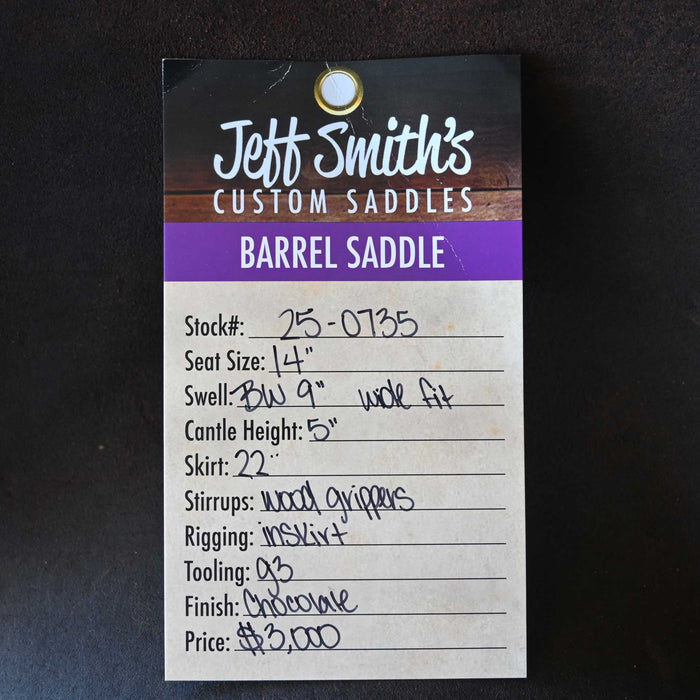 Jeff Smith's
CUSTOM SADDLES
BARREL SADDLE
Stock#: 25-0735
Seat Size: 14"
Swell: BW 9" wide fit
Cantle Height: 5"
Skirt: 22"
Stirrups: wood grippers
Rigging: inskirt
Tooling: g3
Finish: Chocolate
Price: $3,000